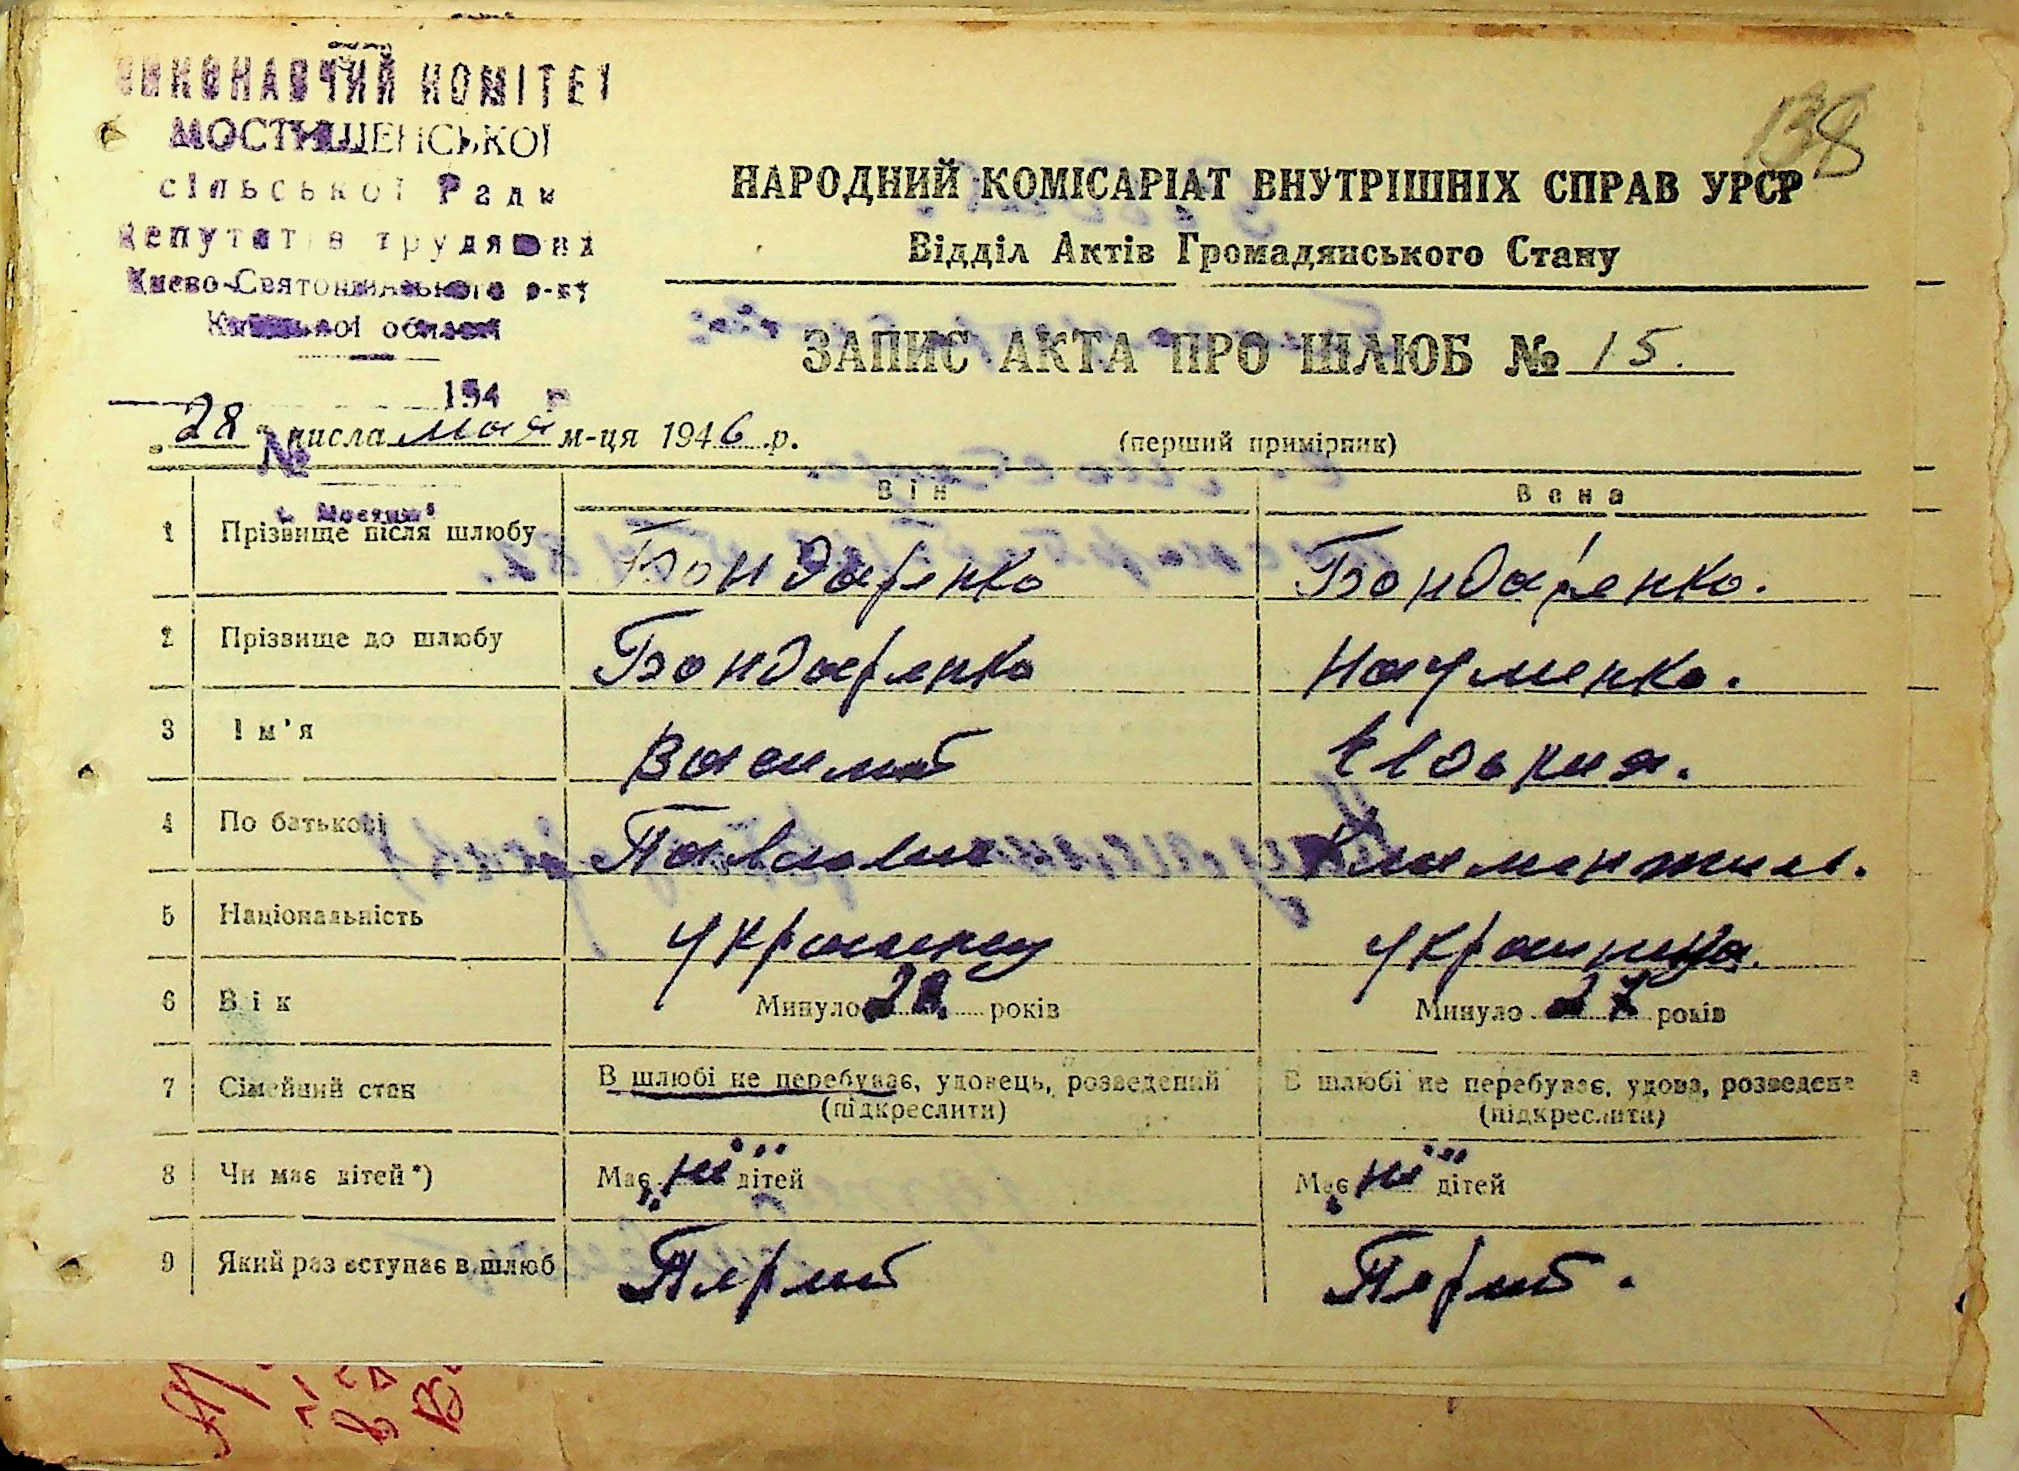 ВИКОНАВЧИЙ КОМІТЕТ
МОСТИЩЕНСЬКОЇ
сільської Ради
Депутатів трудящих
Києво-Святошинського р-ну
Київської області
194 р
№
с. Мостищі
138
НАРОДНИЙ КОМІСАРІАТ ВНУТРІШНІХ СПРАВ УРСР
Відділ Актів Громадянського Стану
ЗАПИС АКТА ПРО ШЛЮБ № 15.
„28“ числа мая м-ця 1946 р.
(перший примірник)
Він Вона
1 Прізвище після шлюбу Бондаренко Бондаренко.
2 Прізвище до шлюбу Бондаренко Науменко.
3 Ім'я Василий Евдокия.
4 По батькові Павлович Климентьев.
5 Національність украинец украинка.
6 Вік Минуло 28 років Минуло 27 років
7 Сімейний стан В шлюбі не перебуває, удовець, розведений (підкреслити) В шлюбі не перебуває, удова, розведена (підкреслити)
8 Чи має дітей*) Має „ні“ дітей Має „ні“ дітей
9 Який раз вступає в шлюб Перший Перший.